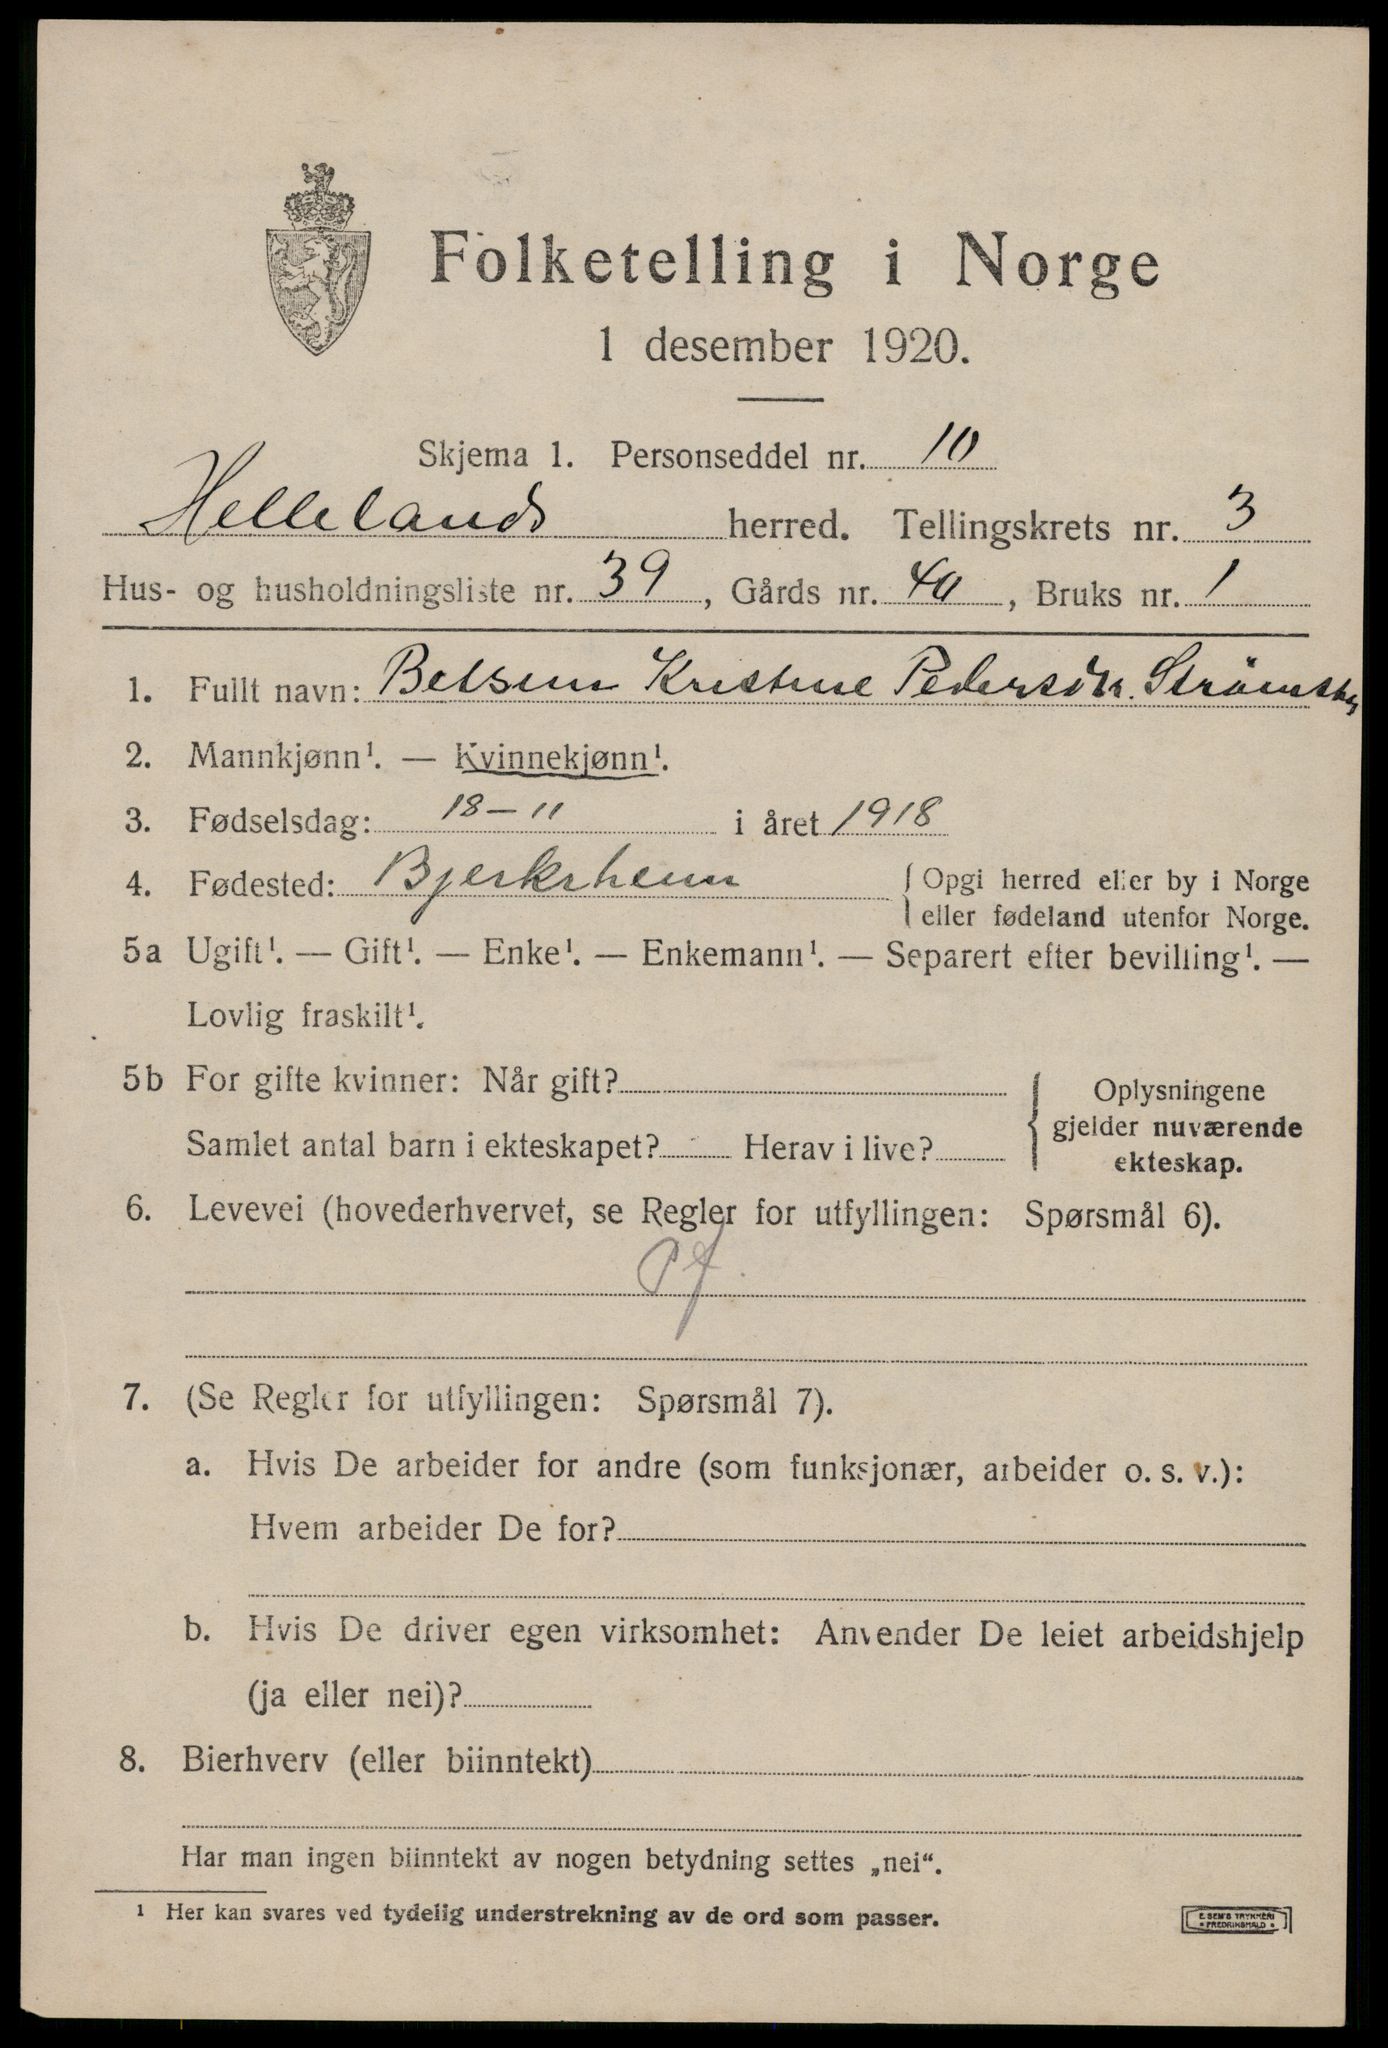 Folketelling i Norge
1 desember 1920.
Skjema 1. Personseddel nr. 10
Hellelands herred. Tellingskrets nr. 3
Hus- og husholdningsliste nr. 39, Gårds nr. 40, Bruks nr. 1
1. Fullt navn: Kristine Pedersdtr.
2. Mannkjønn¹. — Kvinnekjønn¹.
3. Fødselsdag: 18-11 i året 1918
4. Fødested: Bjerkrheim { Opgi herred eller by i Norge
eller fødeland utenfor Norge.
5a Ugift¹. — Gift¹. — Enke¹. — Enkemann¹. — Separert efter bevilling¹. —
Lovlig fraskilt¹.
5b For gifte kvinner: Når gift? { Oplysningene
gjelder nuværende
Samlet antal barn i ekteskapet? Herav i live?
ekteskap.
6. Levevei (hovederhvervet, se Regler for utfyllingen: Spørsmål 6).
7. (Se Regler for utfyllingen: Spørsmål 7).
a. Hvis De arbeider for andre (som funksjonær, arbeider o. s. v.):
Hvem arbeider De for?
b. Hvis De driver egen virksomhet: Anvender De leiet arbeidshjelp
(ja eller nei)?
8. Bierhverv (eller biinntekt)
Har man ingen biinntekt av nogen betydning settes „nei“.
¹ Her kan svares ved tydelig understrekning av de ord som passer.
E. SEM'S TRYKKERI
FREDRIKSHALD